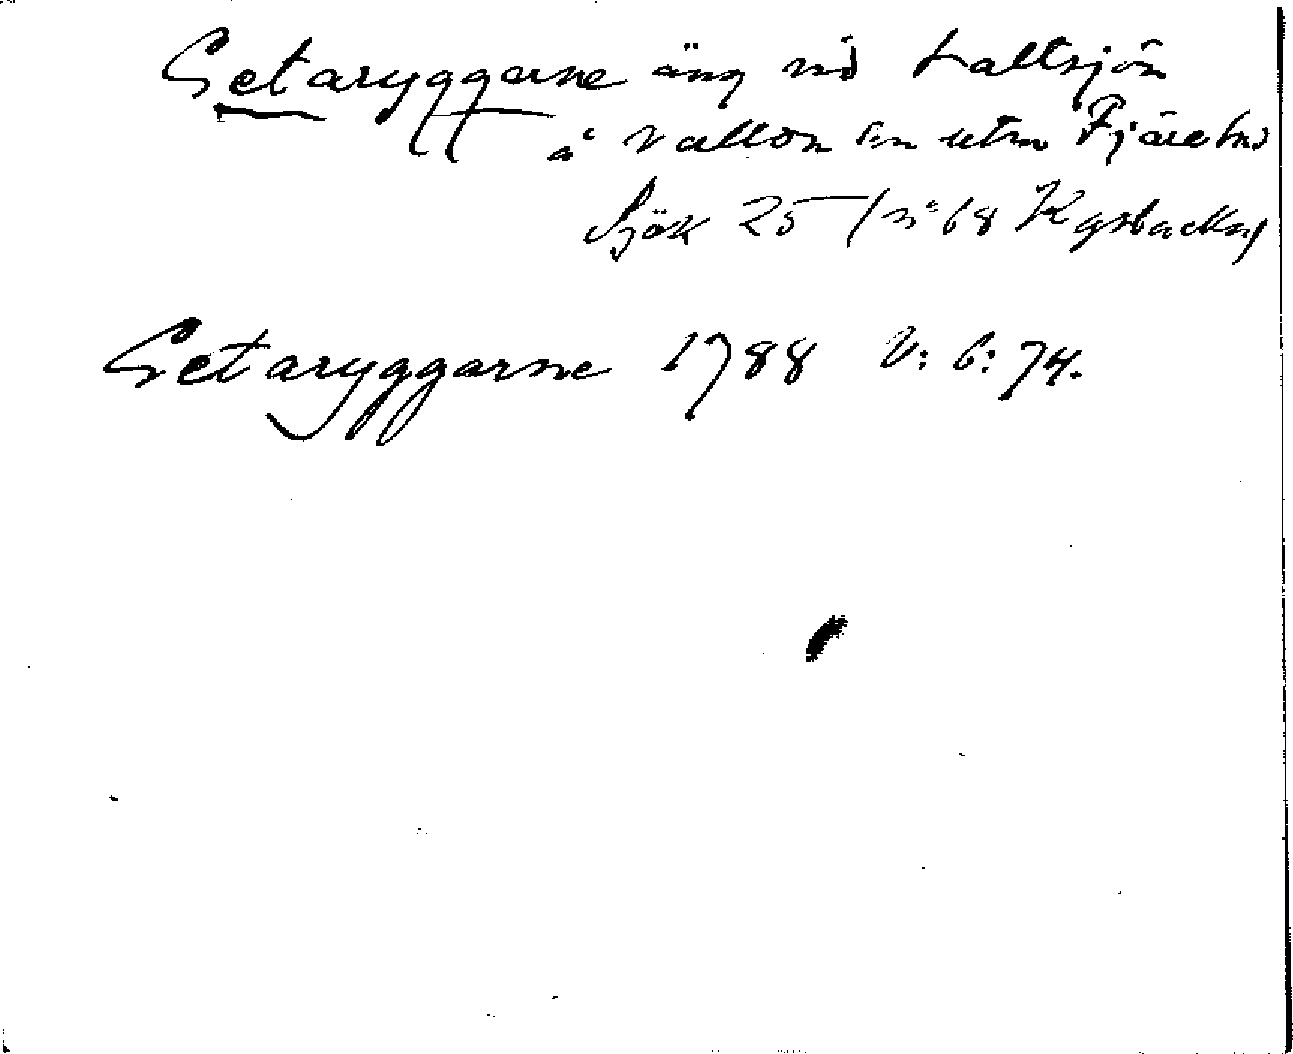 Getaryggarne äng vid Saltsjön
å Vallon Sn utm Fjäre hd
Sjök 25 (n: 68 Kgsbacka)
Getaryggarne 1788 V: 6: 74.